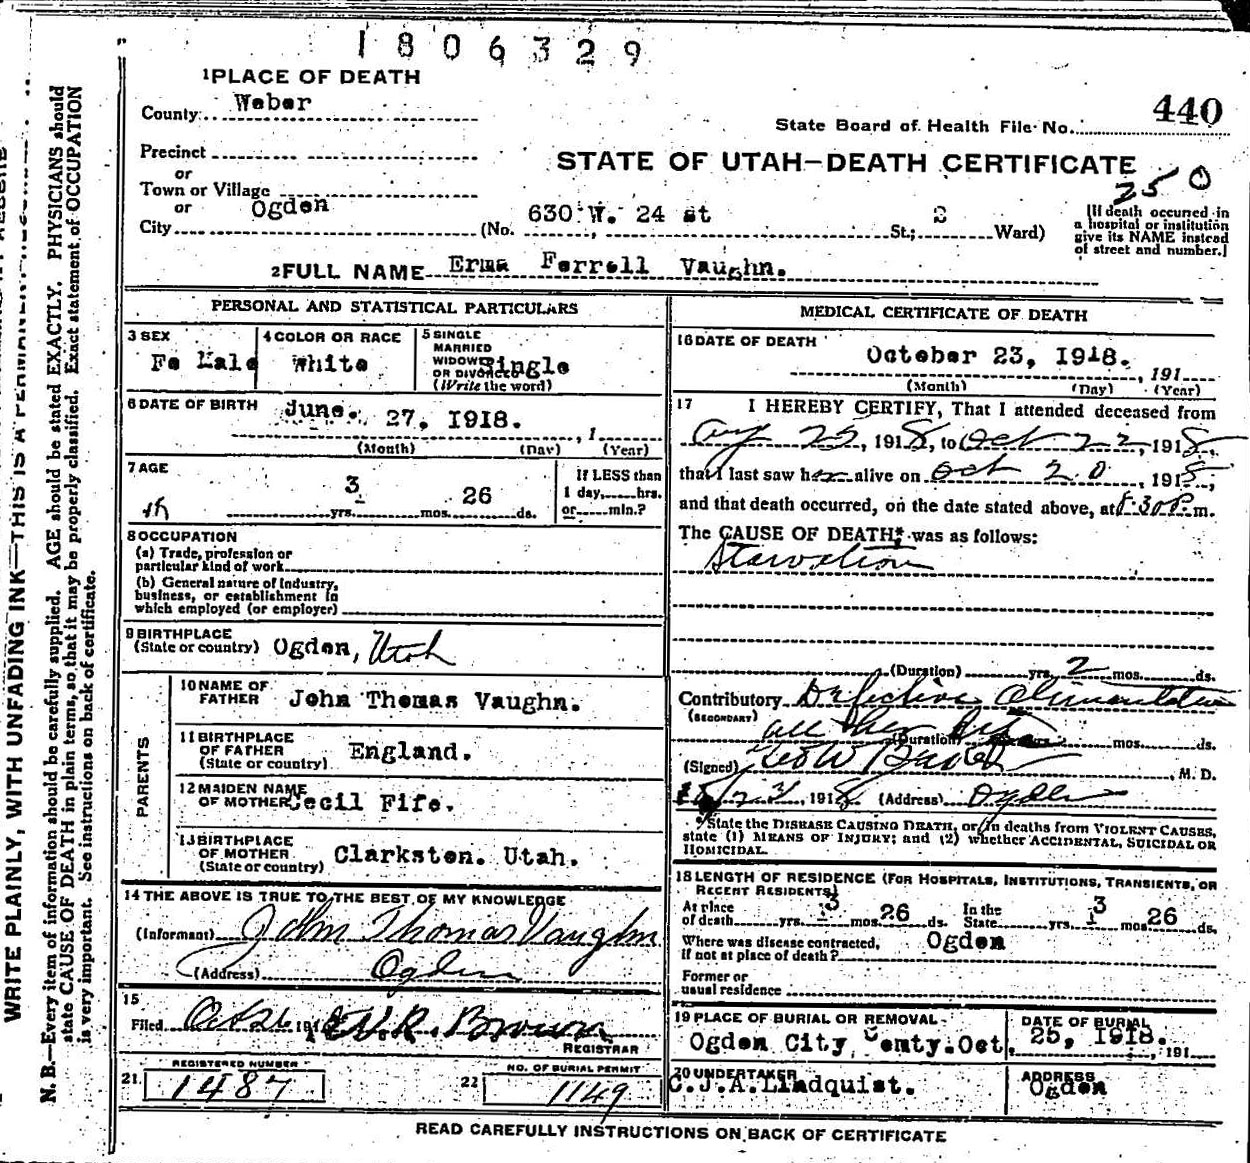 1806329
1 PLACE OF DEATH
County Weber
440
State Board of Health File No.
Precinct
or
Town or Village
or
City Ogden (No. 630 W. 24 st St.; Ward)
STATE OF UTAH—DEATH CERTIFICATE
250
[If death occurred in
a hospital or institution
give its NAME instead
of street and number.]
2 FULL NAME Erma Ferrell Vaughn.
PERSONAL AND STATISTICAL PARTICULARS
3 SEX
Fe Male
4 COLOR OR RACE
White
5 SINGLE
MARRIED
WIDOWED
OR DIVORCED
(Write the word)
Single
6 DATE OF BIRTH June. 27, 1918.
, 1
(Month) (Day) (Year)
7 AGE
yrs. 3 mos. 26 ds.
If LESS than
1 day, hrs.
or min.?
8 OCCUPATION
(a) Trade, profession or
particular kind of work
(b) General nature of Industry,
business, or establishment in
which employed (or employer)
9 BIRTHPLACE
(State or country) Ogden, Utah
PARENTS
10 NAME OF
FATHER John Thomas Vaughn.
11 BIRTHPLACE
OF FATHER
(State or country) England.
12 MAIDEN NAME
OF MOTHER Cecil Fife.
13 BIRTHPLACE
OF MOTHER
(State or country) Clarkston. Utah.
14 THE ABOVE IS TRUE TO THE BEST OF MY KNOWLEDGE
(Informant) John Thomas Vaughn
(Address) Ogden
15
Filed Oct 26 191 Brown
REGISTRAR
REGISTERED NUMBER
21. 1487
NO. OF BURIAL PERMIT
22 1149
MEDICAL CERTIFICATE OF DEATH
16 DATE OF DEATH October 23, 1918.
, 191
(Month) (Day) (Year)
17 I HEREBY CERTIFY, That I attended deceased from
Aug 25, 1918, to Oct 22 1918,
that I last saw her alive on Oct 20, 1918,
and that death occurred, on the date stated above, at 8:30 P. m.
The CAUSE OF DEATH,* was as follows:
Starvation
(Duration) yrs. 2 mos. ds.
Contributory Defective
(SECONDARY) all her life
(Duration) mos. ds.
(Signed) Geo W , M. D.
23, 1918 (Address) Ogden
*State the DISEASE CAUSING DEATH, or, in deaths from VIOLENT CAUSES,
state (1) MEANS OF INJURY; and (2) whether ACCIDENTAL, SUICIDAL OR
HOMICIDAL.
18 LENGTH OF RESIDENCE (FOR HOSPITALS, INSTITUTIONS, TRANSIENTS, OR
RECENT RESIDENTS)
At place
of death yrs. 3 mos. 26 ds.
In the
State yrs. 3 26 ds.
Where was disease contracted,
if not at place of death? Ogden
Former or
usual residence
19 PLACE OF BURIAL OR REMOVAL
Ogden City, Cemty.
DATE OF BURIAL
Oct. 25, 1918.
, 191
20 UNDERTAKER
C.J.A. Lindquist.
ADDRESS
Ogden
READ CAREFULLY INSTRUCTIONS ON BACK OF CERTIFICATE
WRITE PLAINLY, WITH UNFADING INK—THIS IS A PERMANENT RECORD
N. B.—Every item of information should be carefully supplied. AGE should be stated EXACTLY. PHYSICIANS should
state CAUSE OF DEATH in plain terms, so that it may be properly classified. Exact statement of OCCUPATION
is very important. See instructions on back of certificate.